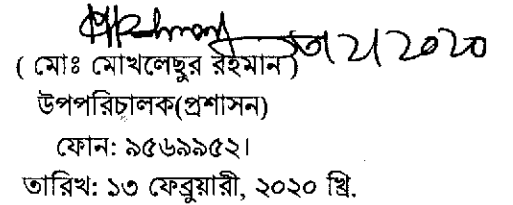 ( মোঃ মোখলেছুর রহমান )
উপপরিচালক(প্রশাসন)
ফোন: ৯৫৬৯৯৫২।
তারিখ: ১৩ ফেব্রুয়ারী, ২০২০ খ্রি.